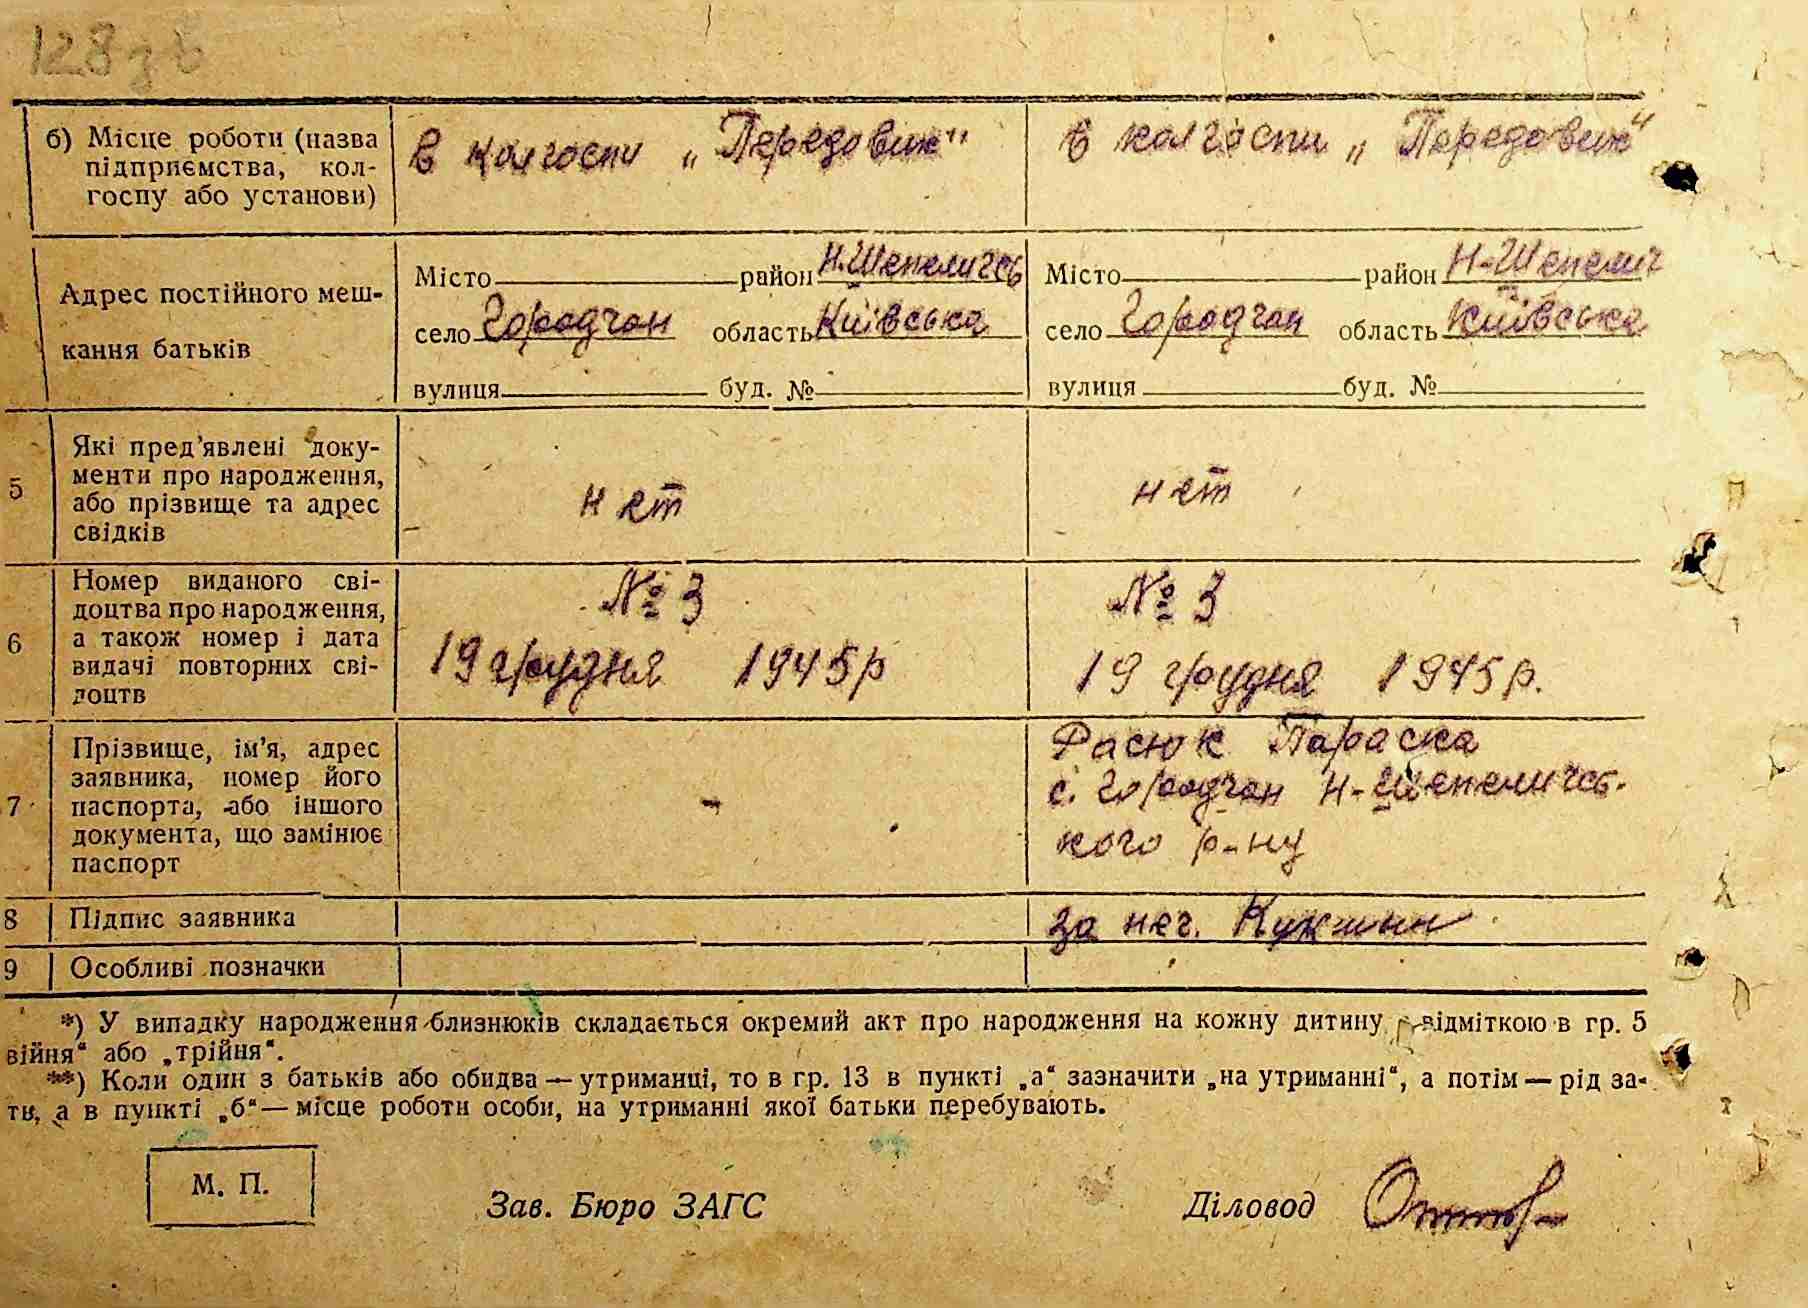 128зв
б) Місце роботи (назва підприємства, кол-госпу або установи)
в колгоспи „Передовик"
в колгоспи „Передовик"
Адрес постійного меш-
кання батьків
Місто район Н.Шепеличсь
село Городчан область Київська
вулиця буд. №
Місто район Н-Шепелич
село Городчан область Київська
вулиця буд. №
5
Які пред'явлені доку-
менти про народження,
або прізвище та адрес
свідків
нет
нет
6
Номер виданого сві-
доцтва про народження,
а також номер і дата
видачі повторних сві-
доцтв
№ 3
19 грудня 1945р
№ 3
19 грудня 1945р.
7
Прізвище, ім'я, адрес
заявника, номер його
паспорта, або іншого
документа, що замінює
паспорт
Расюк Параска
с. Городчан Н-Шепеличсь-
кого р-ну
8 Підпис заявника
за нег.
9 Особливі позначки
*) У випадку народження близнюків складається окремий акт про народження на кожну дитину відміткою в гр. 5
війня" або „трійня".
**) Коли один з батьків або обидва — утриманці, то в гр. 13 в пункті „а" зазначити „на утриманні", а потім — рід за-
ть, а в пункті „б" — місце роботи особи, на утриманні якої батьки перебувають.
М. П.
Зав. Бюро ЗАГС
Діловод